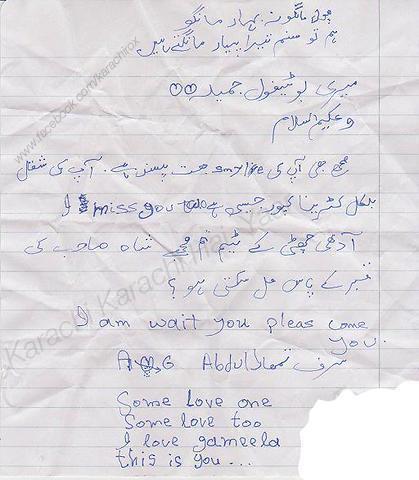 پھول مانگو نہ بہار مانگو
ہم تو صنم تیرا پیار مانگتے ہیں
میری بوٹیفول جمیلہ
وعلیکم اسلام
مجھے جی آپ کی بہت پسند ہے. آپ کی شقل
بلکل کٹرینا کپور جیسی ہے I miss you too
آدھی چھٹی کے ٹیم تم مجھے شاہ صاحب کی
قبر کے پاس مل سکتی ہو؟
I am wait you pleas come
you.
صرف تمھارا Abdul A G
Some Love one
Some love too
I love gameela
this is you...
www.facebook.com/karachirox
Karachi Karachi Hai